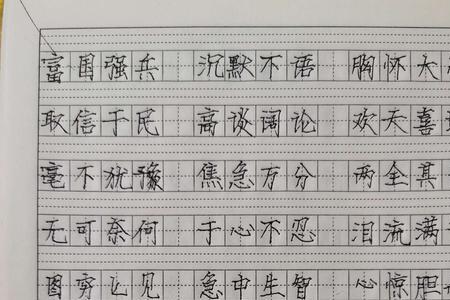 富国强兵 沉默不语 胸怀大
取信于民 高谈阔论 欢天喜
毫不犹豫 焦急万分 两全其
无可奈何 于心不忍 泪流满
图穷匕见 急中生智 心惊胆